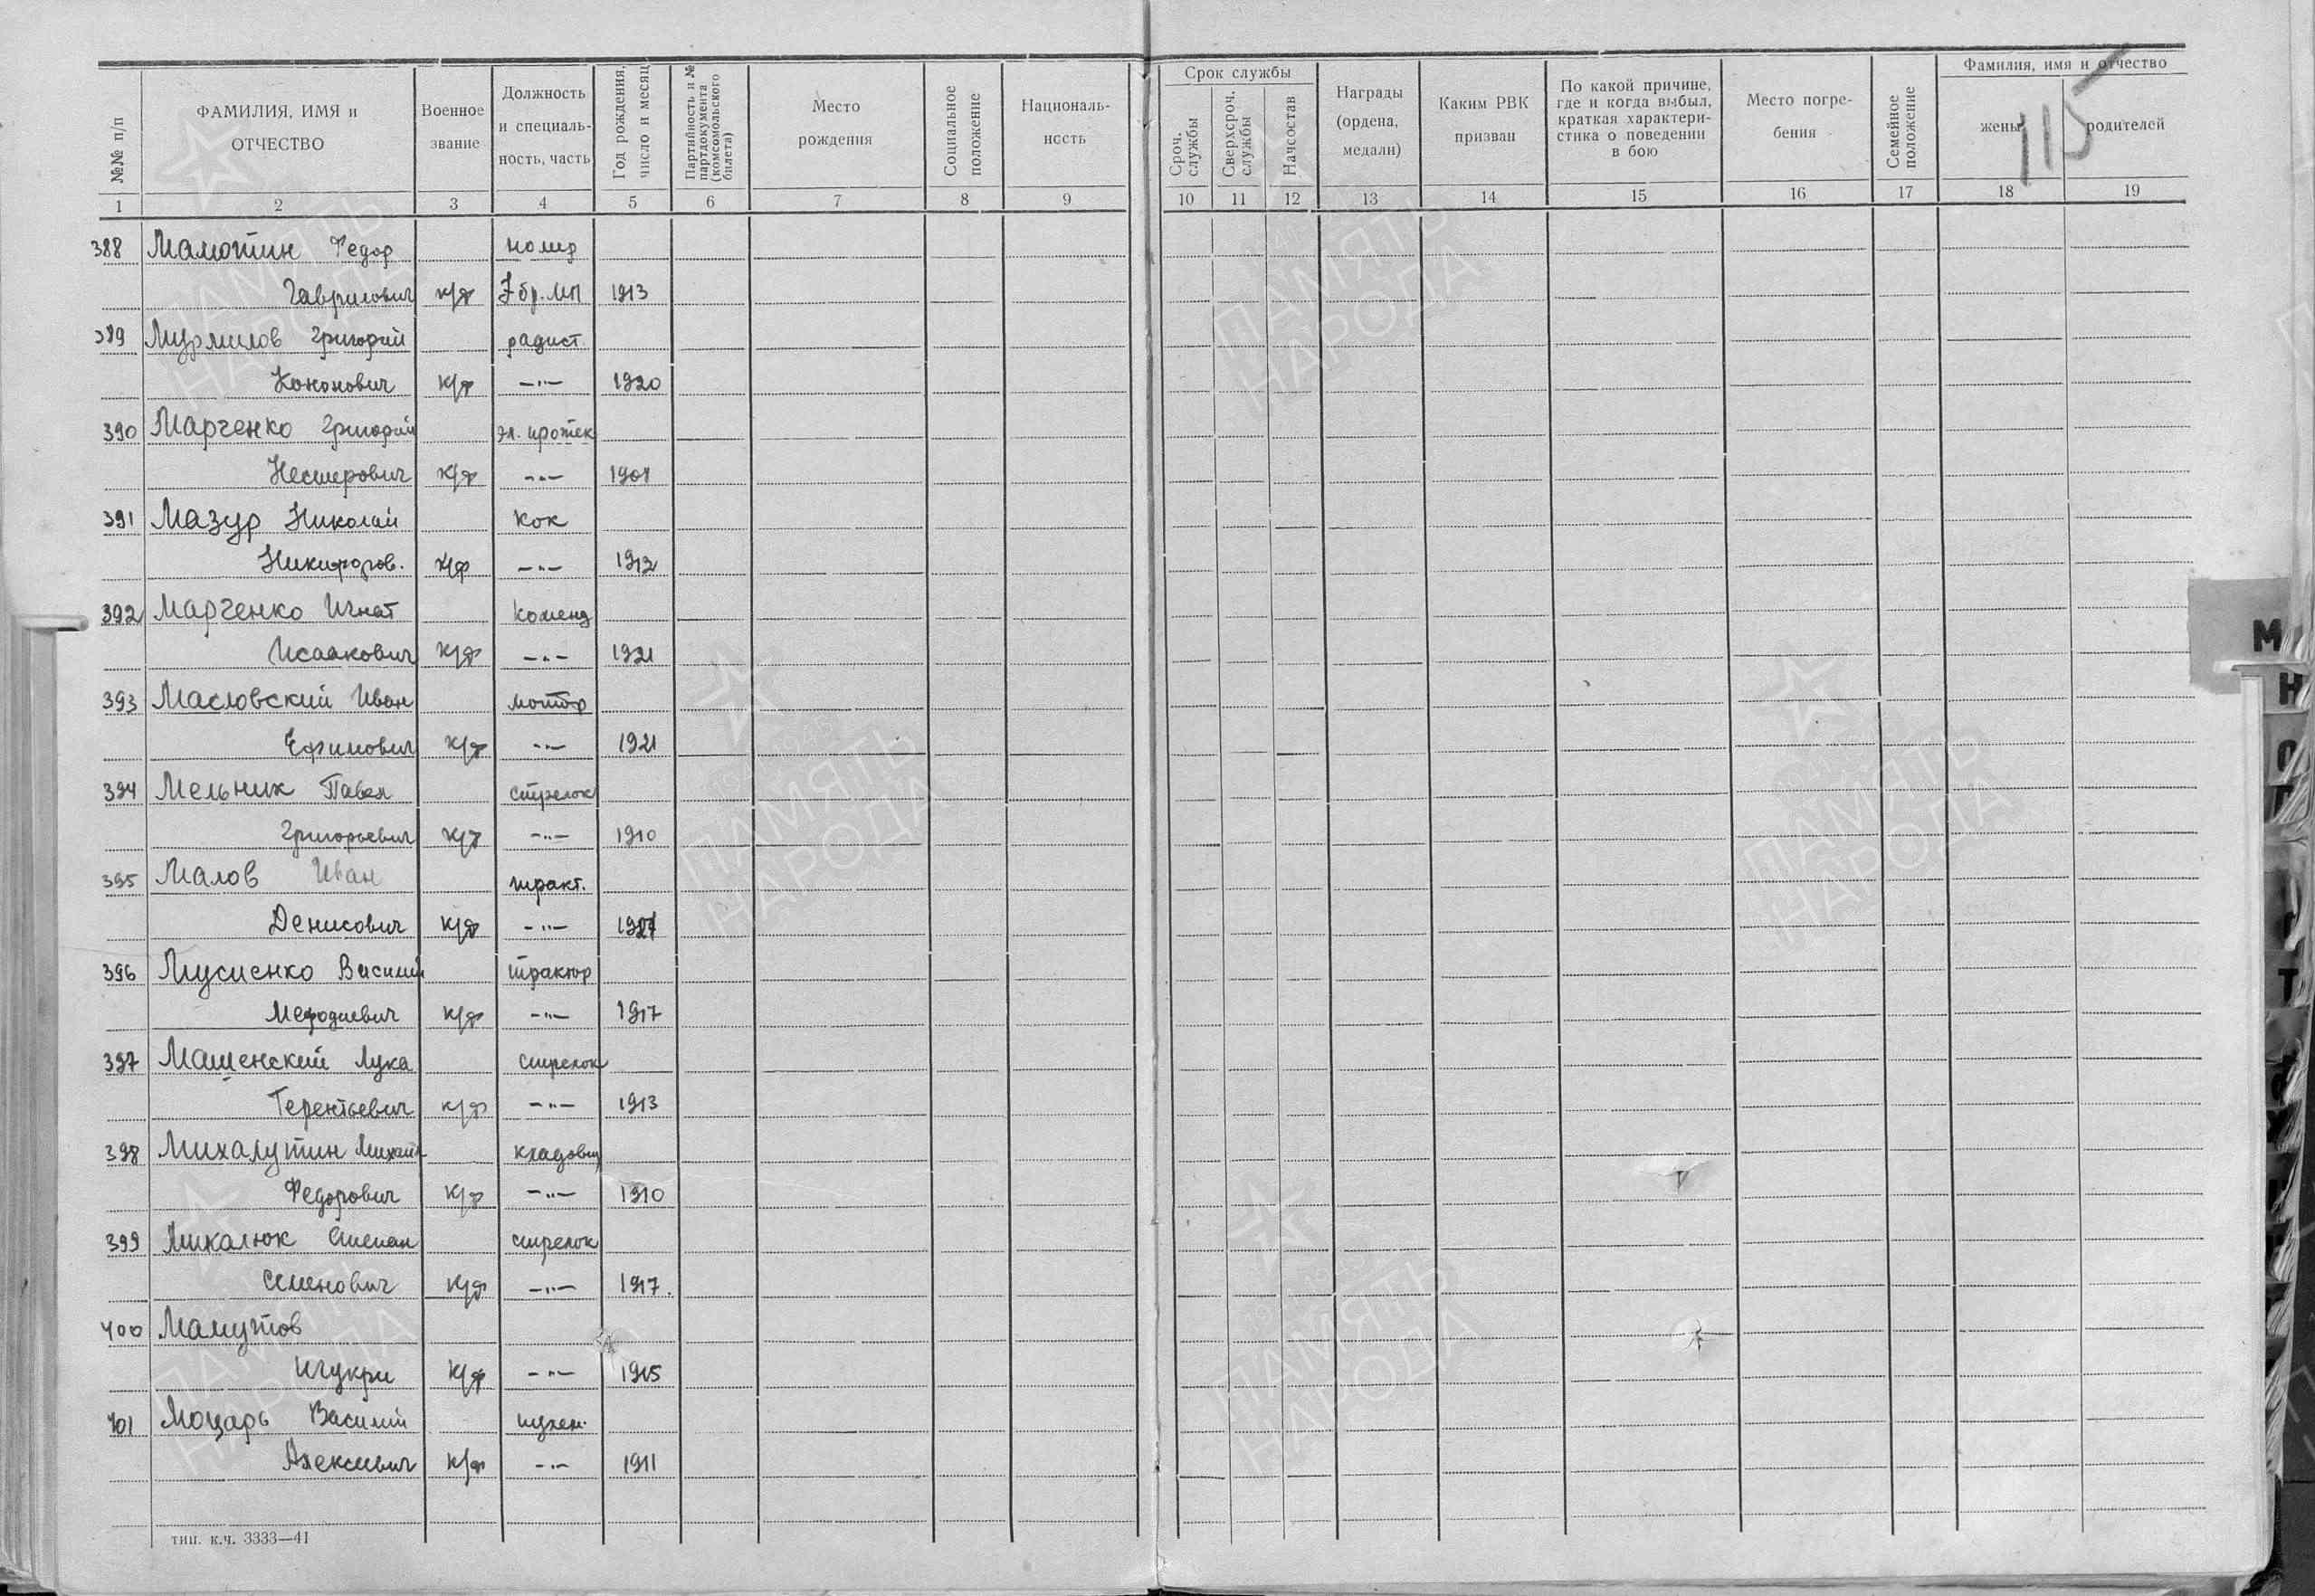 115
№№ п/п
ФАМИЛИЯ, ИМЯ и ОТЧЕСТВО
Военное звание
Должность и специальность, часть
Год рождения, число и месяц
Партийность и № партдокумента (комсомольского билета)
Место рождения
Социальное положение
Националь-ность
Срок службы
Сроч. службы
Сверхсроч. службы
Начсостав
Награды (ордена, медали)
Каким РВК призван
По какой причине, где и когда выбыл, краткая характери-стика о поведении в бою
Место погре-бения
Семейное положение
Фамилия, имя и отчество
жены
родителей
1 2 3 4 5 6 7 8 9 10 11 12 13 14 15 16 17 18 19
388 Мамотин Федор номер
Гаврилович к/ф 7 бр. МП 1913
389 Мурмилов Григорий радист
Кононович к/ф —"— 1920
390 Марченко Григорий
Несторович к/ф —"—
391 Мазур Николай кок
Никифоров. к/ф —"— 1912
392 Марченко Игнат коменд
Исаакович к/ф —"— 1921
393 Масловский Иван мотор
Ефимович к/ф —"— 1921
394 Мельник Павел стрелок
Григорьевич к/ф —"— 1910
395 Малов Иван тракт.
Денисович к/ф —"—
396 Мусиенко Василий трактор
Мефодиевич к/ф —"— 1917
397 Мащенский Лука стрелок
Терентьевич к/ф —"— 1913
398 Михалутин Михаил кладовщ
Федорович к/ф —"— 1910
399 Микалюк Степан стрелок
Семенович к/ф —"— 1917.
400 Мамутов
Шукри к/ф —"— 1915
401 Моцарь Василий
Алексеевич к/ф —"— 1911
тип. к.ч. 3333—41
М
Н
О
П
Т
ПАМЯТЬ НАРОДА